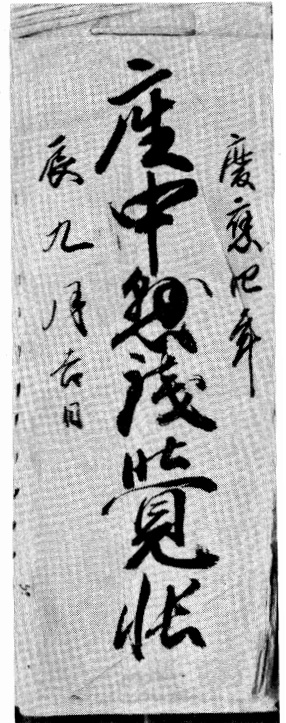 慶應四年
座中懸銭覺帳
辰九月吉日